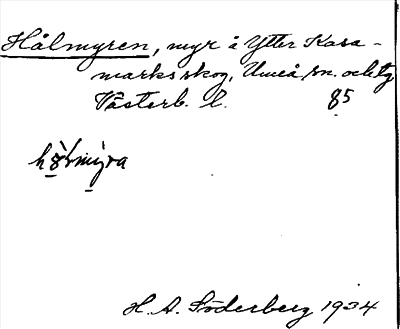 Hålmyren, myr å Ytter Kasa-
marks skog, Umeå sn. och tg
Västerb. l. 85
H. A. Söderberg 1934